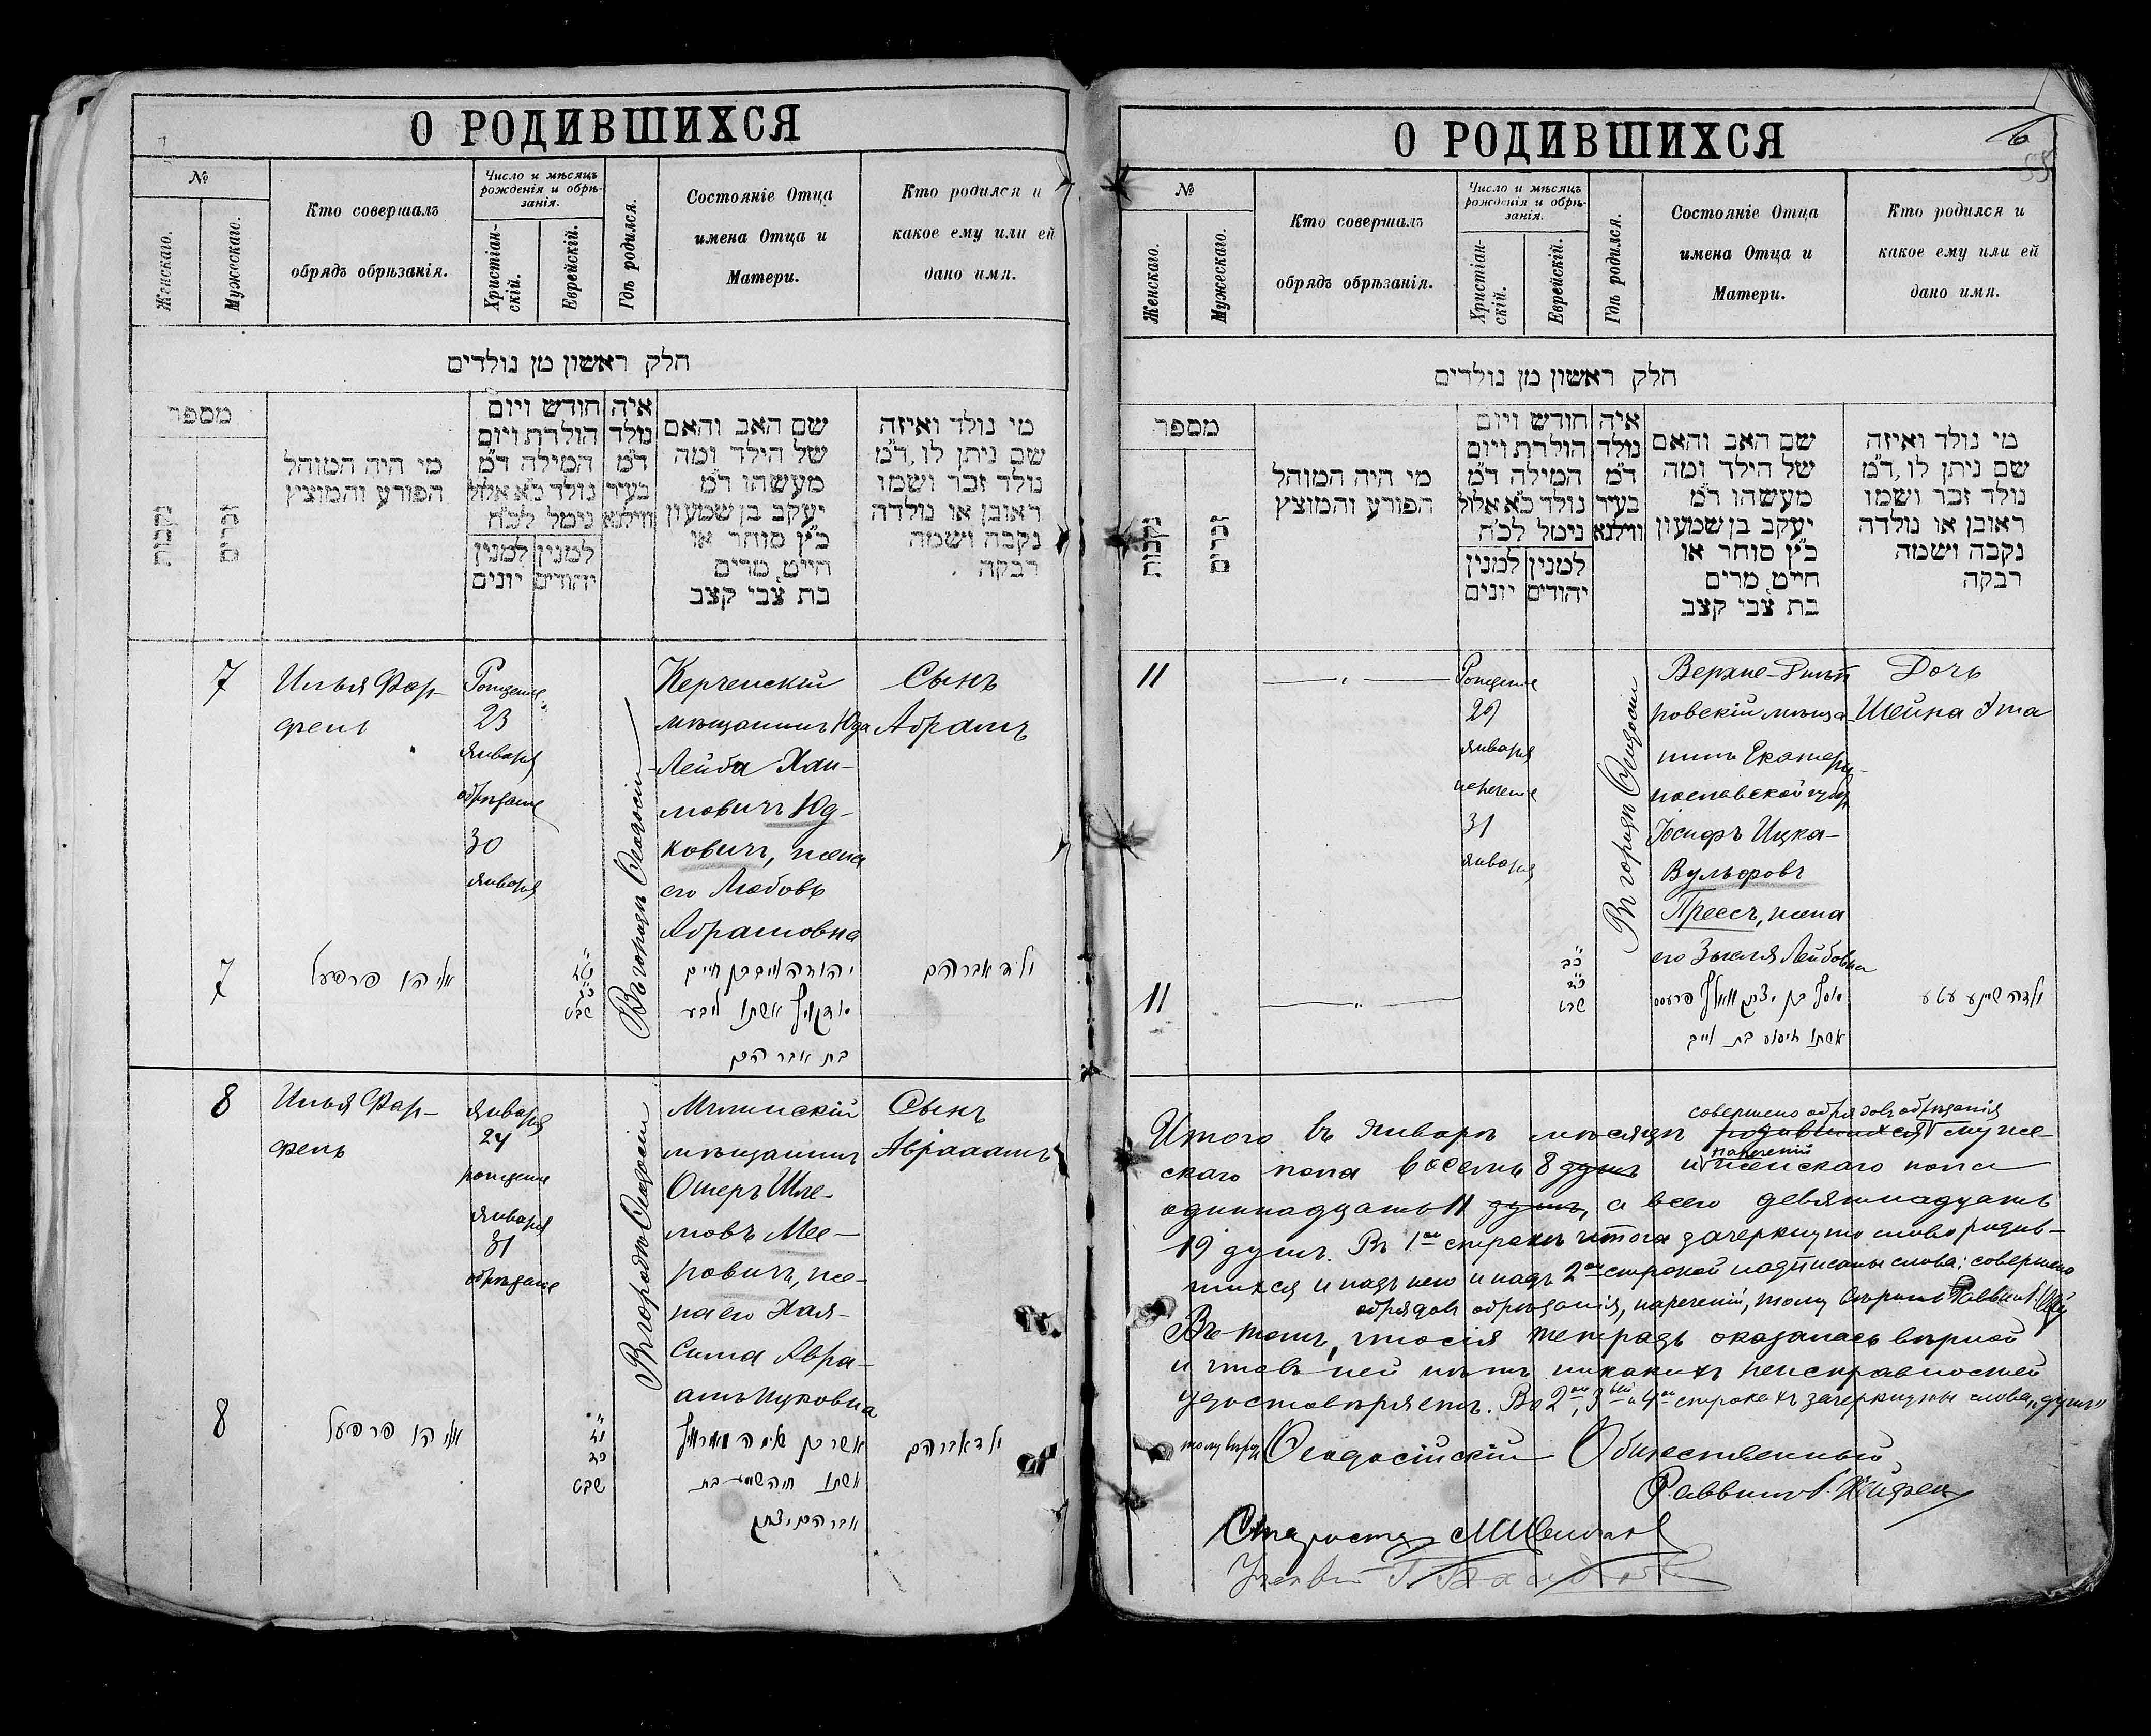 О РОДИВШИХСЯ
№
Женскаго.
Мужескаго.
Кто совершалъ
обрядъ обрѣзанія.
Число и мѣсяцъ
рожденія и обрѣ-
занія.
Христіан-
скій.
Еврейскій.
Гдѣ родился.
Состояніе Отца
имена Отца и
Матери.
Кто родился и
какое ему или ей
дано имя.
חלק ראשון מן נולדים
מספר
נקבות
זכרים
מי היה המוהל
הפורע והמוצץ
חודש ויום
הולדת ויום
המילה ד"מ
נולד כ"א אלול
נימל לכ"ח
למנין יונים
למנין יהודים
איה
נולד
ד"מ
בעיר
ווילנא
שם האב והאם
של הילד ומה
מעשהו ד"מ
יעקב בן שמעון
כ"ץ סוחר או
חייט, מרים
בת צבי קצב
מי נולד ואיזה
שם ניתן לו, ד"מ
נולד זכר ושמו
ראובן או נולדה
נקבה ושמה
רבקה
7
Илья Фар-
фель
Рождение
23
января
обрѣзание
30
января
Въ городѣ Ѳеодосіи
Керченскій
мѣщанинъ Юда
Лейба Хаи-
мовичъ Юд-
ковичъ, жена
его Любовь
Абрамовна
Сынъ
Абрамъ
7
אליהו פרפעל
שבט
יהודה לייב בן חיים
יודקוויץ אשתו ליבע
בת אברהם
ילד אברהם
8
Илья Фар-
фель
января
24
рождение
января
31
обрѣзание
Въ городѣ Ѳеодосіи
мѣщанинъ
Ошеръ Шле-
мовъ Мее-
ровичъ, же-
на его Хая-
Сима Авра-
амъ Ицковна
Сынъ
Авраамъ
8
אליהו פרפעל
שבט
אשר בן שלמה מאיראוויץ
אשתו חיה סימע בת
אברהם יצחק
ילד אברהם
О РОДИВШИХСЯ
6
№
Женскаго.
Мужескаго.
Кто совершалъ
обрядъ обрѣзанія.
Число и мѣсяцъ
рожденія и обрѣ-
занія.
Христіан-
скій.
Еврейскій.
Гдѣ родился.
Состояніе Отца
имена Отца и
Матери.
Кто родился и
какое ему или ей
дано имя.
חלק ראשון מן נולדים
מספר
נקבות
זכרים
מי היה המוהל
הפורע והמוצץ
חודש ויום
הולדת ויום
המילה ד"מ
נולד כ"א אלול
נימל לכ"ח
למנין יונים
למנין יהודים
איה
נולד
ד"מ
בעיר
ווילנא
שם האב והאם
של הילד ומה
מעשהו ד"מ
יעקב בן שמעון
כ"ץ סוחר או
חייט, מרים
בת צבי קצב
מי נולד ואיזה
שם ניתן לו, ד"מ
נולד זכר ושמו
ראובן או נולדה
נקבה ושמה
רבקה
11
Рождение
29
января
наречение
31
января
Въ городѣ Ѳеодосіи
Верхне-Днѣп
ровскій мѣща-
нинъ Екатери-
нославской губ.
Іосифъ Ицка-
Вульфовъ
Прессъ, жена
его Лейбовна
Дочь
Шейна Эта
11
כב
שבט
יוסף בן יצחק וואלף פרעסס
אשתו בת לייב
ילדה שיינע עטע
совершено обрядовъ обрѣзанія
Итого въ январѣ мѣсяцѣ родившихся муже-
нареченій
скаго пола восемь 8 душъ и женскаго пола
одиннадцать 11 душъ, а всего девятнадцать
19 душъ. Въ 1ой строкѣ итога зачеркнуто слово родив-
шихся и надъ нею и надъ 2ой строкой надписаны слова: совершено
обрядовъ обрѣзанія, нареченій, тому вѣрить Раввинъ
Въ томъ, что сія тетрадь оказалась вѣрной
и что въ ней нѣтъ никакихъ неисправностей
удостовѣряетъ. Въ 2ой, 3ей и 4ой строкахъ зачеркнуты слова „душъ"
тому вѣрить Ѳеодосійскій Общественный
Раввинъ
Староста